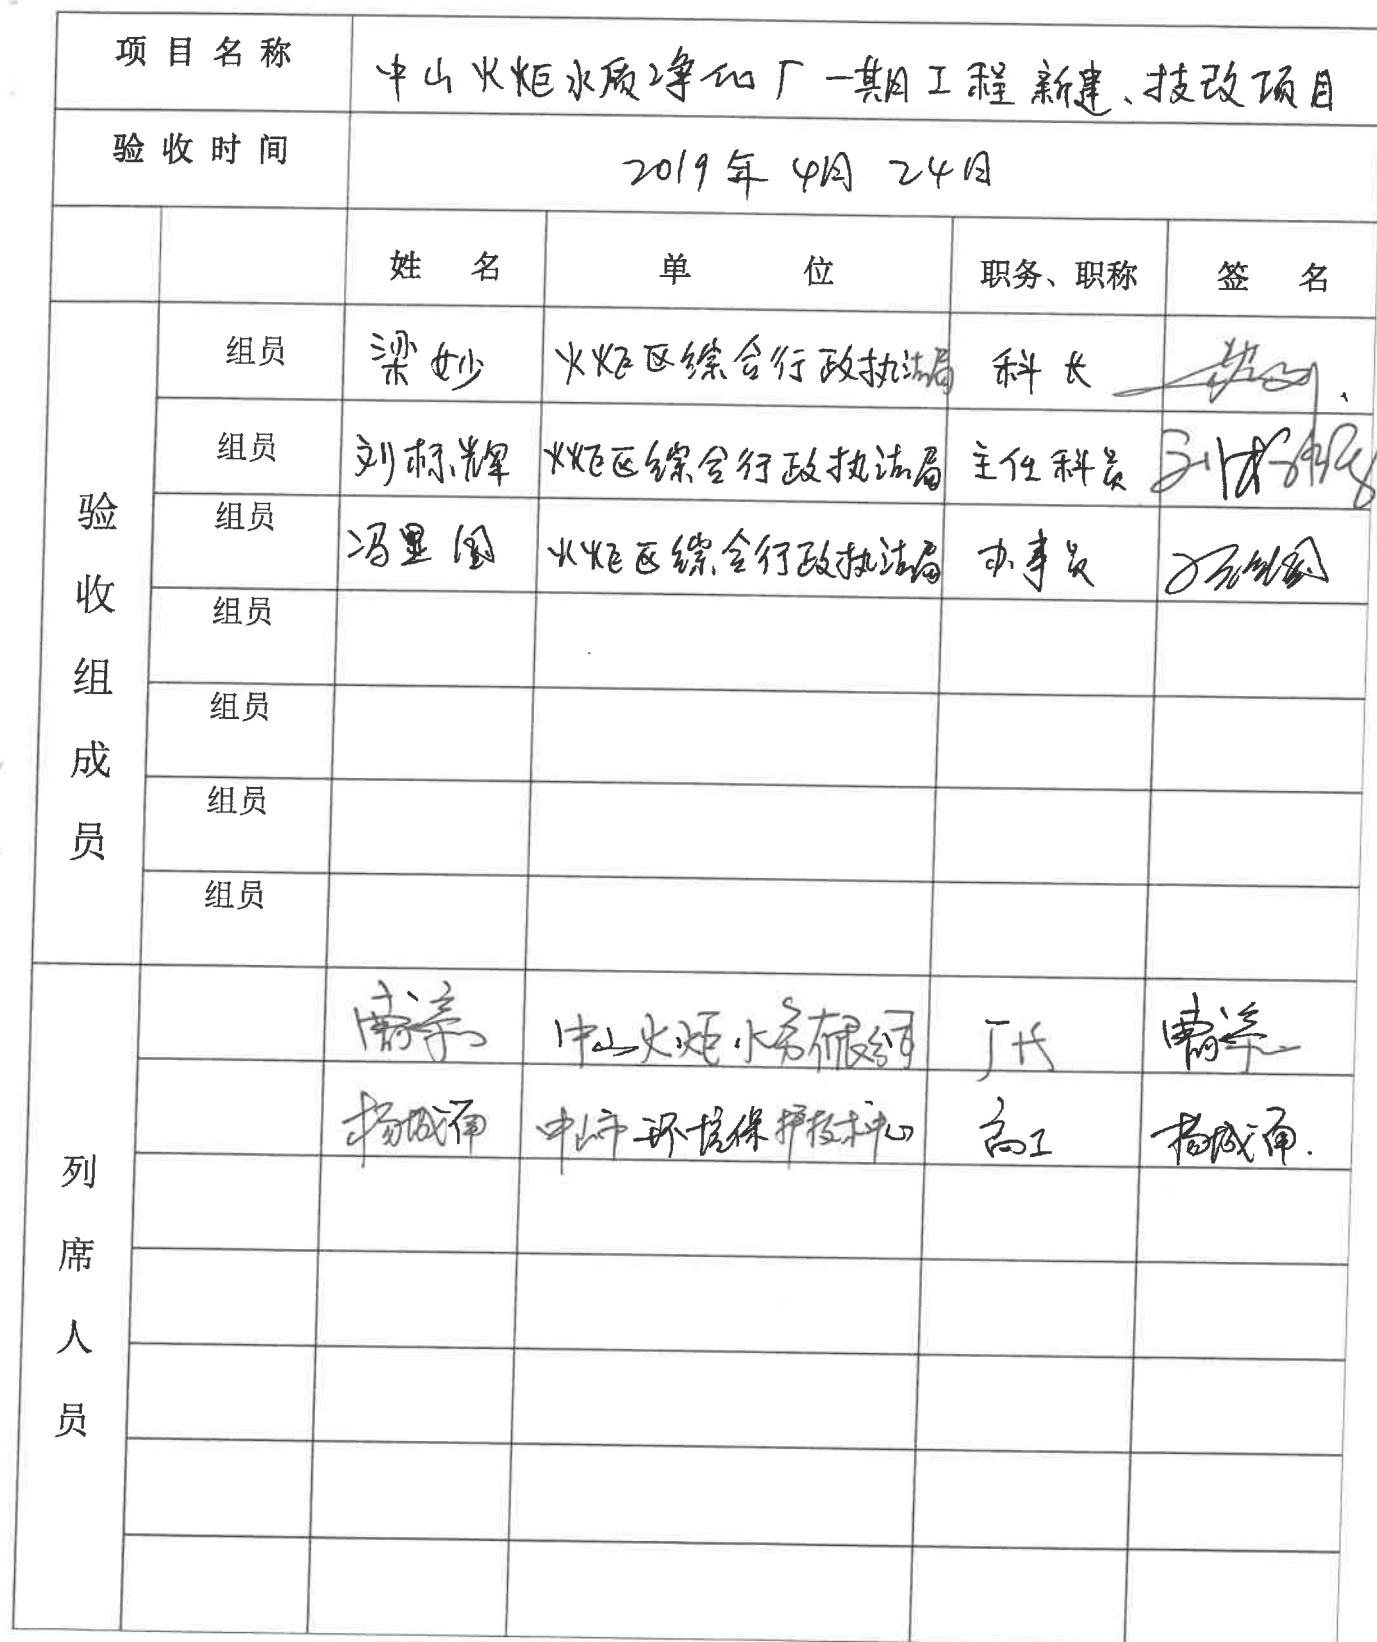 项目名称 中山火炬水质净化厂一期工程新建、技改项目
验收时间 2019年4月24日
姓名 单位 职务、职称 签名
验收组成员
组员 梁妙 火炬区综合行政执法局 科长
组员 刘标辉 火炬区综合行政执法局 主任科员 刘标辉
组员 冯显国 火炬区综合行政执法局 办事员 冯显国
组员
组员
组员
组员
列席人员
中山火炬水务有限公司 厂长
杨城甫 中山市环境保护技术中心 高工 杨城甫.